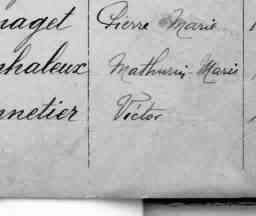 naget Pierre Marie
nhaleux Mathurin Marie
nnetier Victor